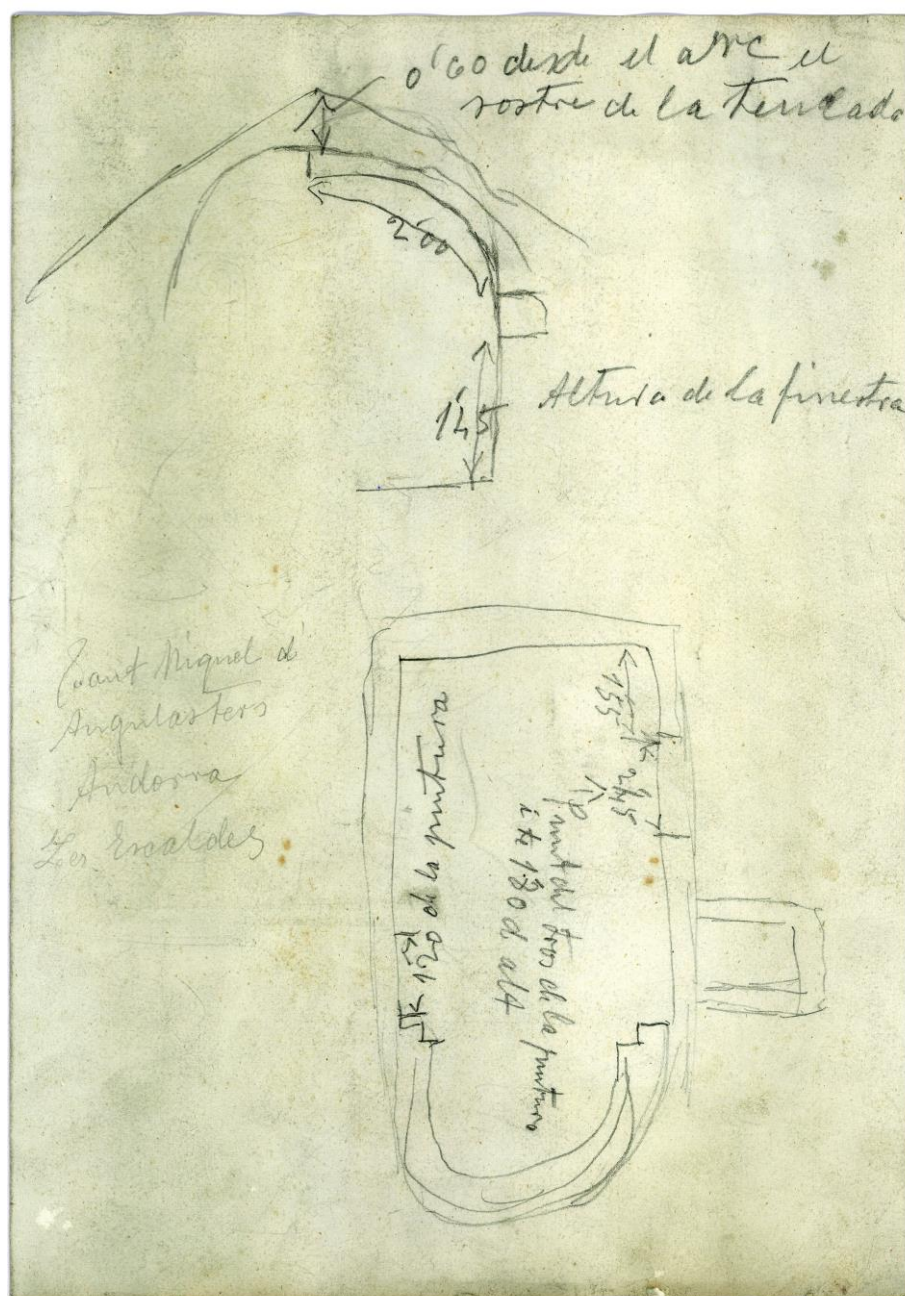 0'60 desde el arc el
rostre de la teulada
2'00
1'45
Altura de la finestra
Sant Miquel d'
Angulasters
Andorra
Les Escaldes
1'55
2'45
punt del tros de la pintura
i te 1'80 d alt
1'20 de la pintura